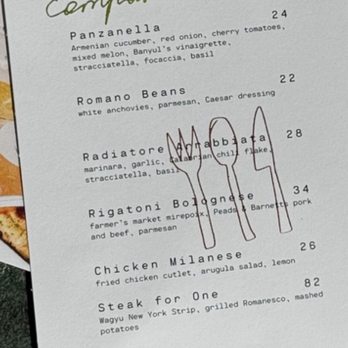 Panzanella 24
Armenian cucumber, red onion, cherry tomatoes,
mixed melon, Banyul's vinaigrette,
stracciatella, focaccia, basil
Romano Beans 22
white anchovies, parmesan, Caesar dressing
Radiatore Arrabbiata 28
marinara, garlic, Calabrian chili flake,
stracciatella, basil
Rigatoni Bolognese 34
farmer's market mirepoix, Peads & Barnetts pork
and beef, parmesan
Chicken Milanese 26
fried chicken cutlet, arugula salad, lemon
Steak for One 82
Wagyu New York Strip, grilled Romanesco, mashed
potatoes